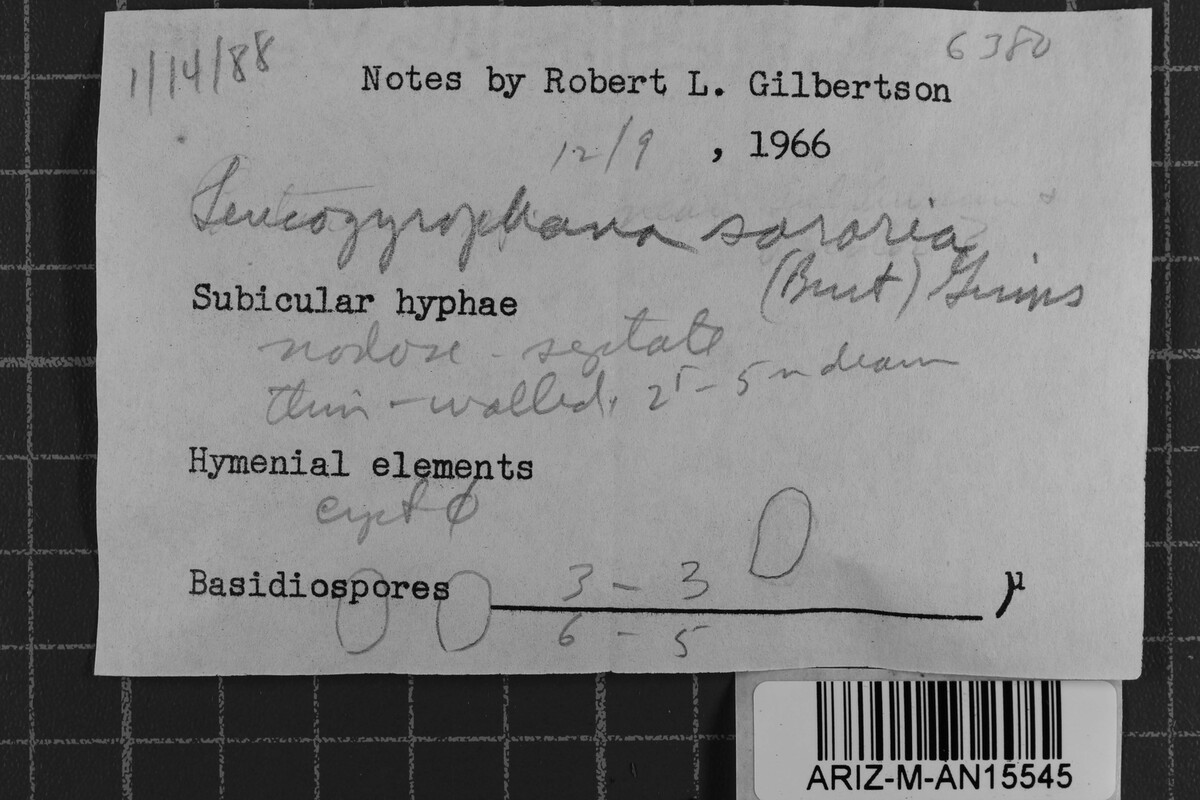 1/14/88
6380
Notes by Robert L. Gilbertson
12/9 , 1966
Leucogyrophana sororia
(Burt) Ginns
Subicular hyphae
nodose-septate
thin-walled, 2⁵-5 µ diam
Hymenial elements
cyst ϕ
Basidiospores 3 - 3 µ
6 - 5
ARIZ-M-AN15545